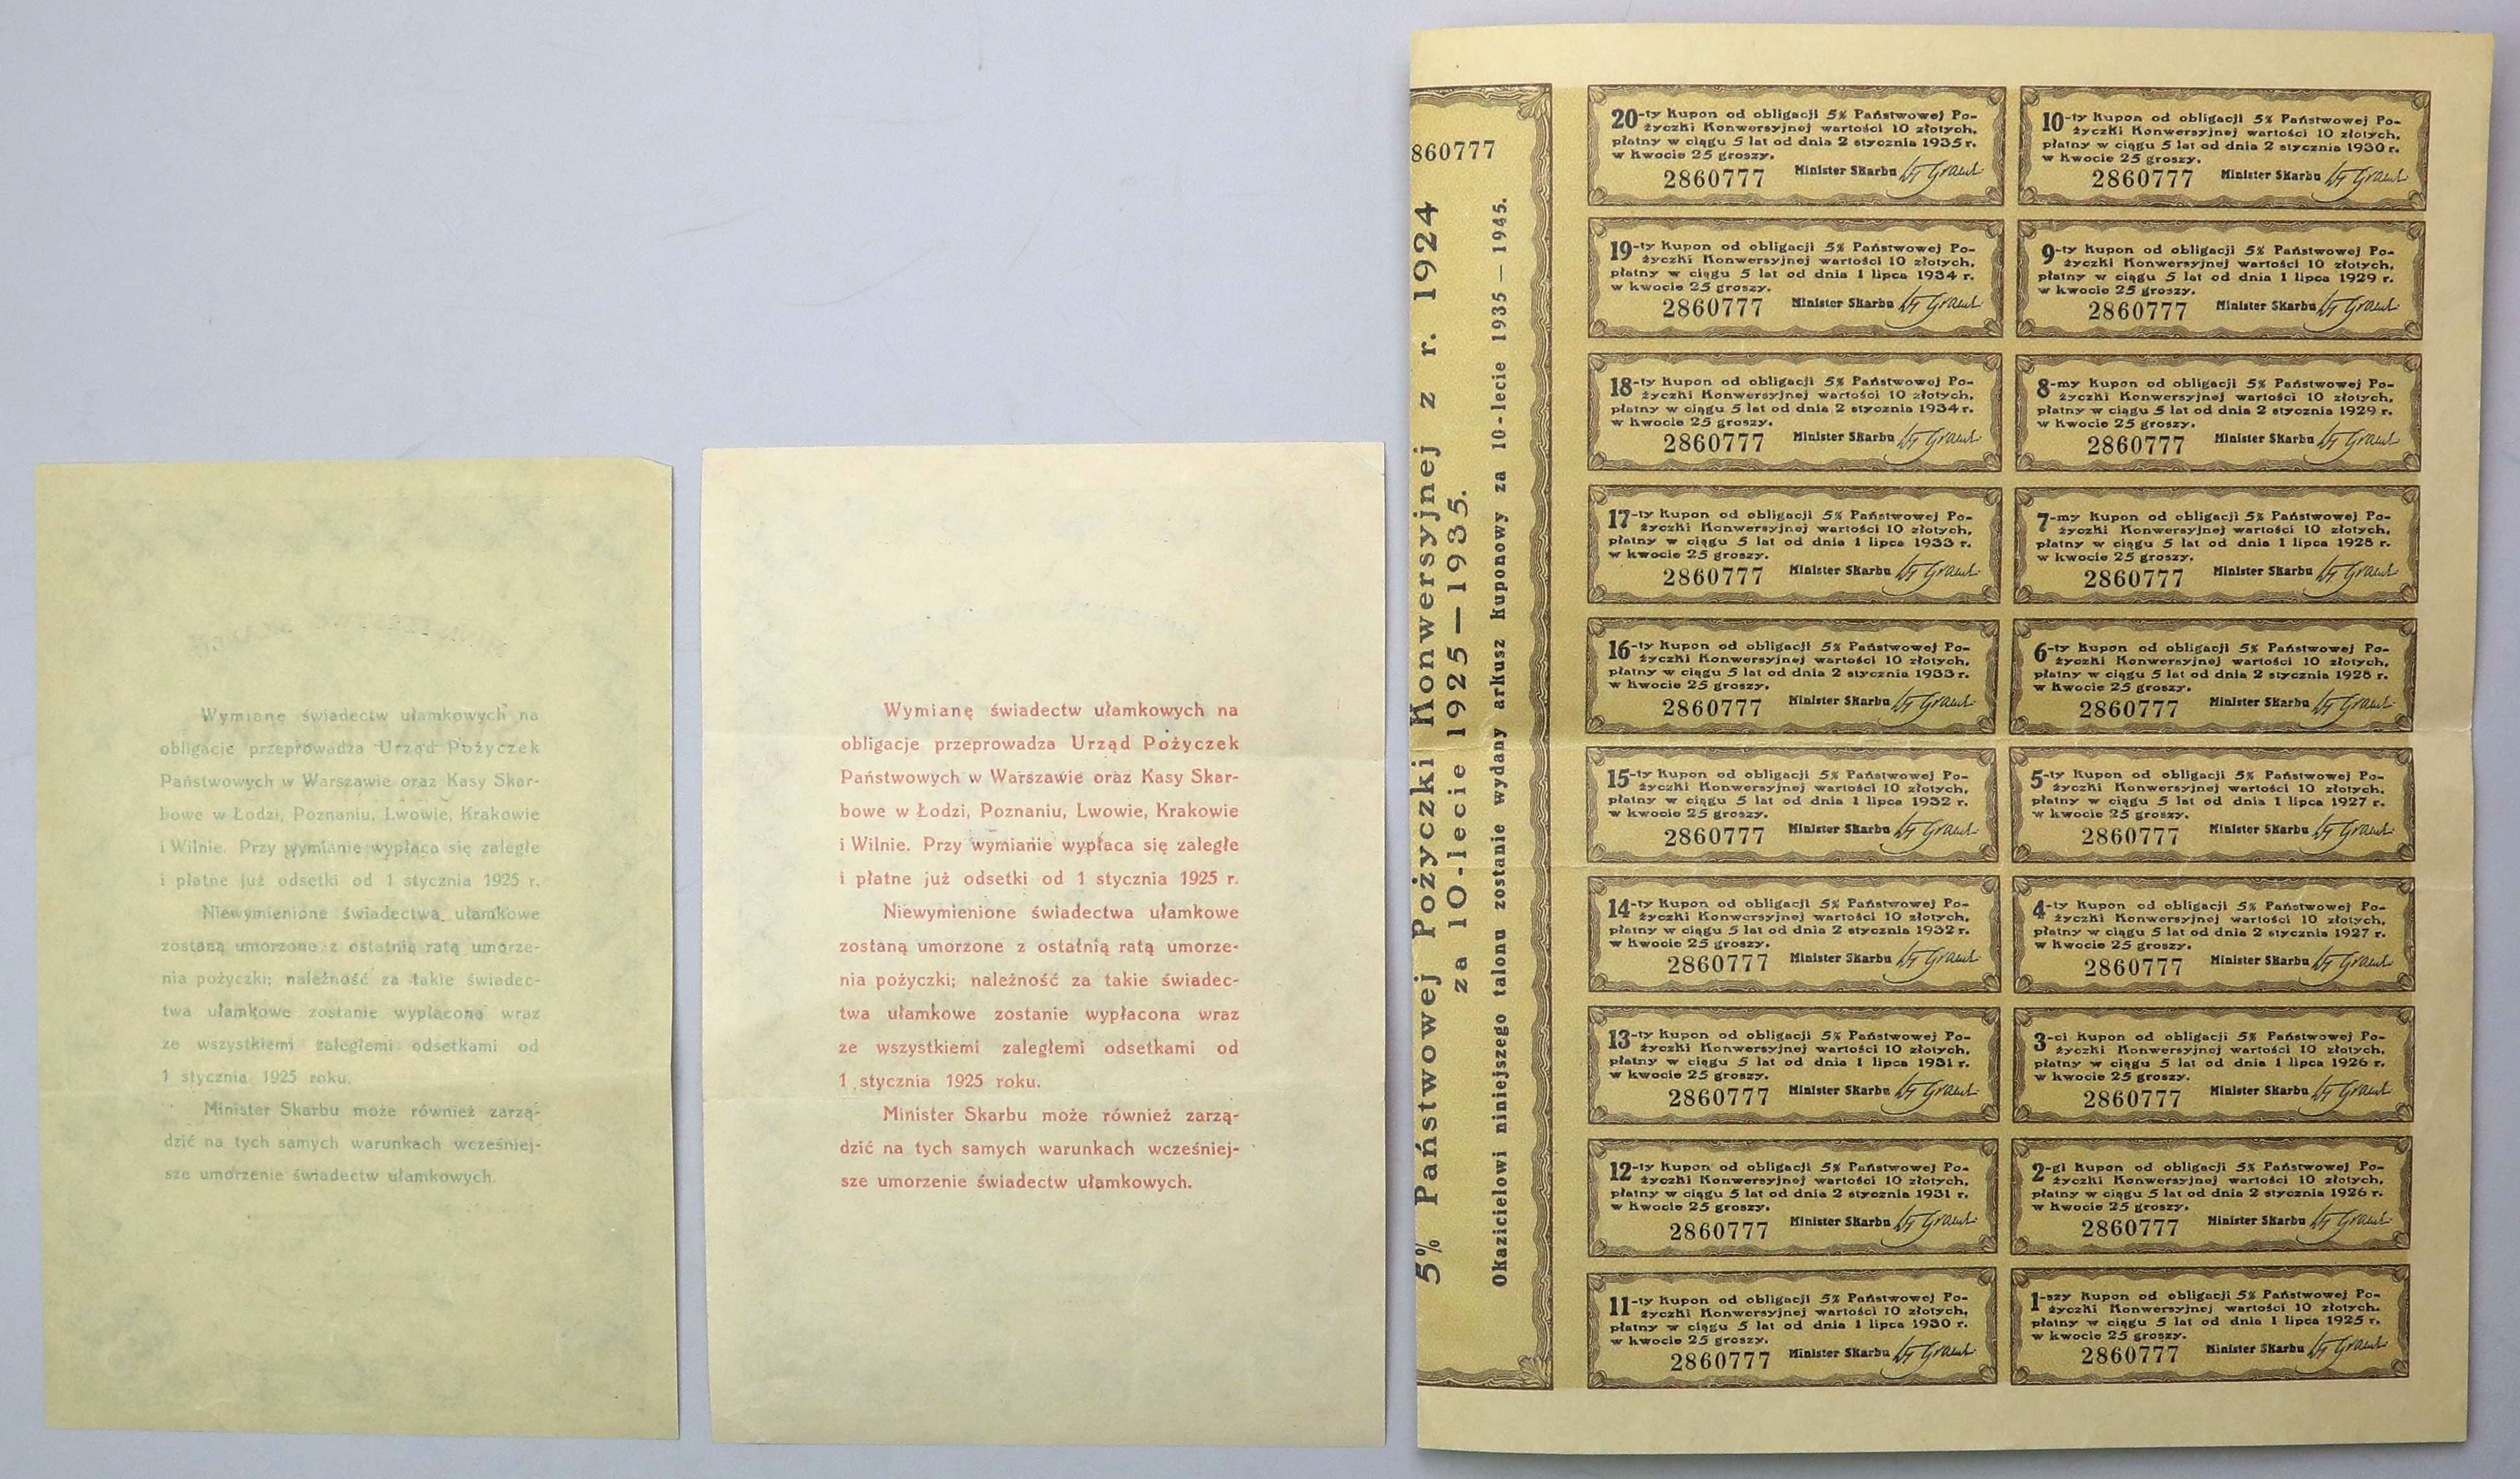 Wymianę świadectw ułamkowych na
obligacje przeprowadza Urząd Pożyczek
Państwowych w Warszawie oraz Kasy Skar-
bowe w Łodzi, Poznaniu, Lwowie, Krakowie
i Wilnie. Przy wymianie wypłaca się zaległe
i płatne już odsetki od 1 stycznia 1925 r.
Niewymienione świadectwa ułamkowe
zostaną umorzone z ostatnią ratą umorze-
nia pożyczki; należność za takie świadec-
twa ułamkowe zostanie wypłacona wraz
ze wszystkiemi zaległemi odsetkami od
1 stycznia 1925 roku.
Minister Skarbu może również zarzą-
dzić na tych samych warunkach wcześniej-
sze umorzenie świadectw ułamkowych.
Wymianę świadectw ułamkowych na
obligacje przeprowadza Urząd Pożyczek
Państwowych w Warszawie oraz Kasy Skar-
bowe w Łodzi, Poznaniu, Lwowie, Krakowie
i Wilnie. Przy wymianie wypłaca się zaległe
i płatne już odsetki od 1 stycznia 1925 r.
Niewymienione świadectwa ułamkowe
zostaną umorzone z ostatnią ratą umorze-
nia pożyczki; należność za takie świadec-
twa ułamkowe zostanie wypłacona wraz
ze wszystkiemi zaległemi odsetkami od
1 stycznia 1925 roku.
Minister Skarbu może również zarzą-
dzić na tych samych warunkach wcześniej-
sze umorzenie świadectw ułamkowych.
860777
5% Państwowej Pożyczki Konwersyjnej z r. 1924
za 10-lecie 1925—1935.
Okazicielowi niniejszego talonu zostanie wydany arkusz kuponowy za 10-lecie 1935 — 1945.
20-ty Kupon od obligacji 5% Państwowej Po-
życzki Konwersyjnej wartości 10 złotych,
płatny w ciągu 5 lat od dnia 2 stycznia 1935 r.
w kwocie 25 groszy.
2860777 Minister Skarbu
19-ty Kupon od obligacji 5% Państwowej Po-
życzki Konwersyjnej wartości 10 złotych,
płatny w ciągu 5 lat od dnia 1 lipca 1934 r.
w kwocie 25 groszy.
2860777 Minister Skarbu
18-ty Kupon od obligacji 5% Państwowej Po-
życzki Konwersyjnej wartości 10 złotych,
płatny w ciągu 5 lat od dnia 2 stycznia 1934 r.
w kwocie 25 groszy.
2860777 Minister Skarbu
17-ty Kupon od obligacji 5% Państwowej Po-
życzki Konwersyjnej wartości 10 złotych,
płatny w ciągu 5 lat od dnia 1 lipca 1933 r.
w kwocie 25 groszy.
2860777 Minister Skarbu
16-ty Kupon od obligacji 5% Państwowej Po-
życzki Konwersyjnej wartości 10 złotych,
płatny w ciągu 5 lat od dnia 2 stycznia 1933 r.
w kwocie 25 groszy.
2860777 Minister Skarbu
15-ty Kupon od obligacji 5% Państwowej Po-
życzki Konwersyjnej wartości 10 złotych,
płatny w ciągu 5 lat od dnia 1 lipca 1932 r.
w kwocie 25 groszy.
2860777 Minister Skarbu
14-ty Kupon od obligacji 5% Państwowej Po-
życzki Konwersyjnej wartości 10 złotych,
płatny w ciągu 5 lat od dnia 2 stycznia 1932 r.
w kwocie 25 groszy.
2860777 Minister Skarbu
13-ty Kupon od obligacji 5% Państwowej Po-
życzki Konwersyjnej wartości 10 złotych,
płatny w ciągu 5 lat od dnia 1 lipca 1931 r.
w kwocie 25 groszy.
2860777 Minister Skarbu
12-ty Kupon od obligacji 5% Państwowej Po-
życzki Konwersyjnej wartości 10 złotych,
płatny w ciągu 5 lat od dnia 2 stycznia 1931 r.
w kwocie 25 groszy.
2860777 Minister Skarbu
11-ty Kupon od obligacji 5% Państwowej Po-
życzki Konwersyjnej wartości 10 złotych,
płatny w ciągu 5 lat od dnia 1 lipca 1930 r.
w kwocie 25 groszy.
2860777 Minister Skarbu
10-ty Kupon od obligacji 5% Państwowej Po-
życzki Konwersyjnej wartości 10 złotych,
płatny w ciągu 5 lat od dnia 2 stycznia 1930 r.
w kwocie 25 groszy.
2860777 Minister Skarbu
9-ty Kupon od obligacji 5% Państwowej Po-
życzki Konwersyjnej wartości 10 złotych,
płatny w ciągu 5 lat od dnia 1 lipca 1929 r.
w kwocie 25 groszy.
2860777 Minister Skarbu
8-my Kupon od obligacji 5% Państwowej Po-
życzki Konwersyjnej wartości 10 złotych,
płatny w ciągu 5 lat od dnia 2 stycznia 1929 r.
w kwocie 25 groszy.
2860777 Minister Skarbu
7-my Kupon od obligacji 5% Państwowej Po-
życzki Konwersyjnej wartości 10 złotych,
płatny w ciągu 5 lat od dnia 1 lipca 1928 r.
w kwocie 25 groszy.
2860777 Minister Skarbu
6-ty Kupon od obligacji 5% Państwowej Po-
życzki Konwersyjnej wartości 10 złotych,
płatny w ciągu 5 lat od dnia 2 stycznia 1928 r.
w kwocie 25 groszy.
2860777 Minister Skarbu
5-ty Kupon od obligacji 5% Państwowej Po-
życzki Konwersyjnej wartości 10 złotych,
płatny w ciągu 5 lat od dnia 1 lipca 1927 r.
w kwocie 25 groszy.
2860777 Minister Skarbu
4-ty Kupon od obligacji 5% Państwowej Po-
życzki Konwersyjnej wartości 10 złotych,
płatny w ciągu 5 lat od dnia 2 stycznia 1927 r.
w kwocie 25 groszy.
2860777 Minister Skarbu
3-ci Kupon od obligacji 5% Państwowej Po-
życzki Konwersyjnej wartości 10 złotych,
płatny w ciągu 5 lat od dnia 1 lipca 1926 r.
w kwocie 25 groszy.
2860777 Minister Skarbu
2-gi Kupon od obligacji 5% Państwowej Po-
życzki Konwersyjnej wartości 10 złotych,
płatny w ciągu 5 lat od dnia 2 stycznia 1926 r.
w kwocie 25 groszy.
2860777 Minister Skarbu
1-szy Kupon od obligacji 5% Państwowej Po-
życzki Konwersyjnej wartości 10 złotych.
płatny w ciągu 5 lat od dnia 1 lipca 1925 r.
w kwocie 25 groszy.
2860777 Minister Skarbu